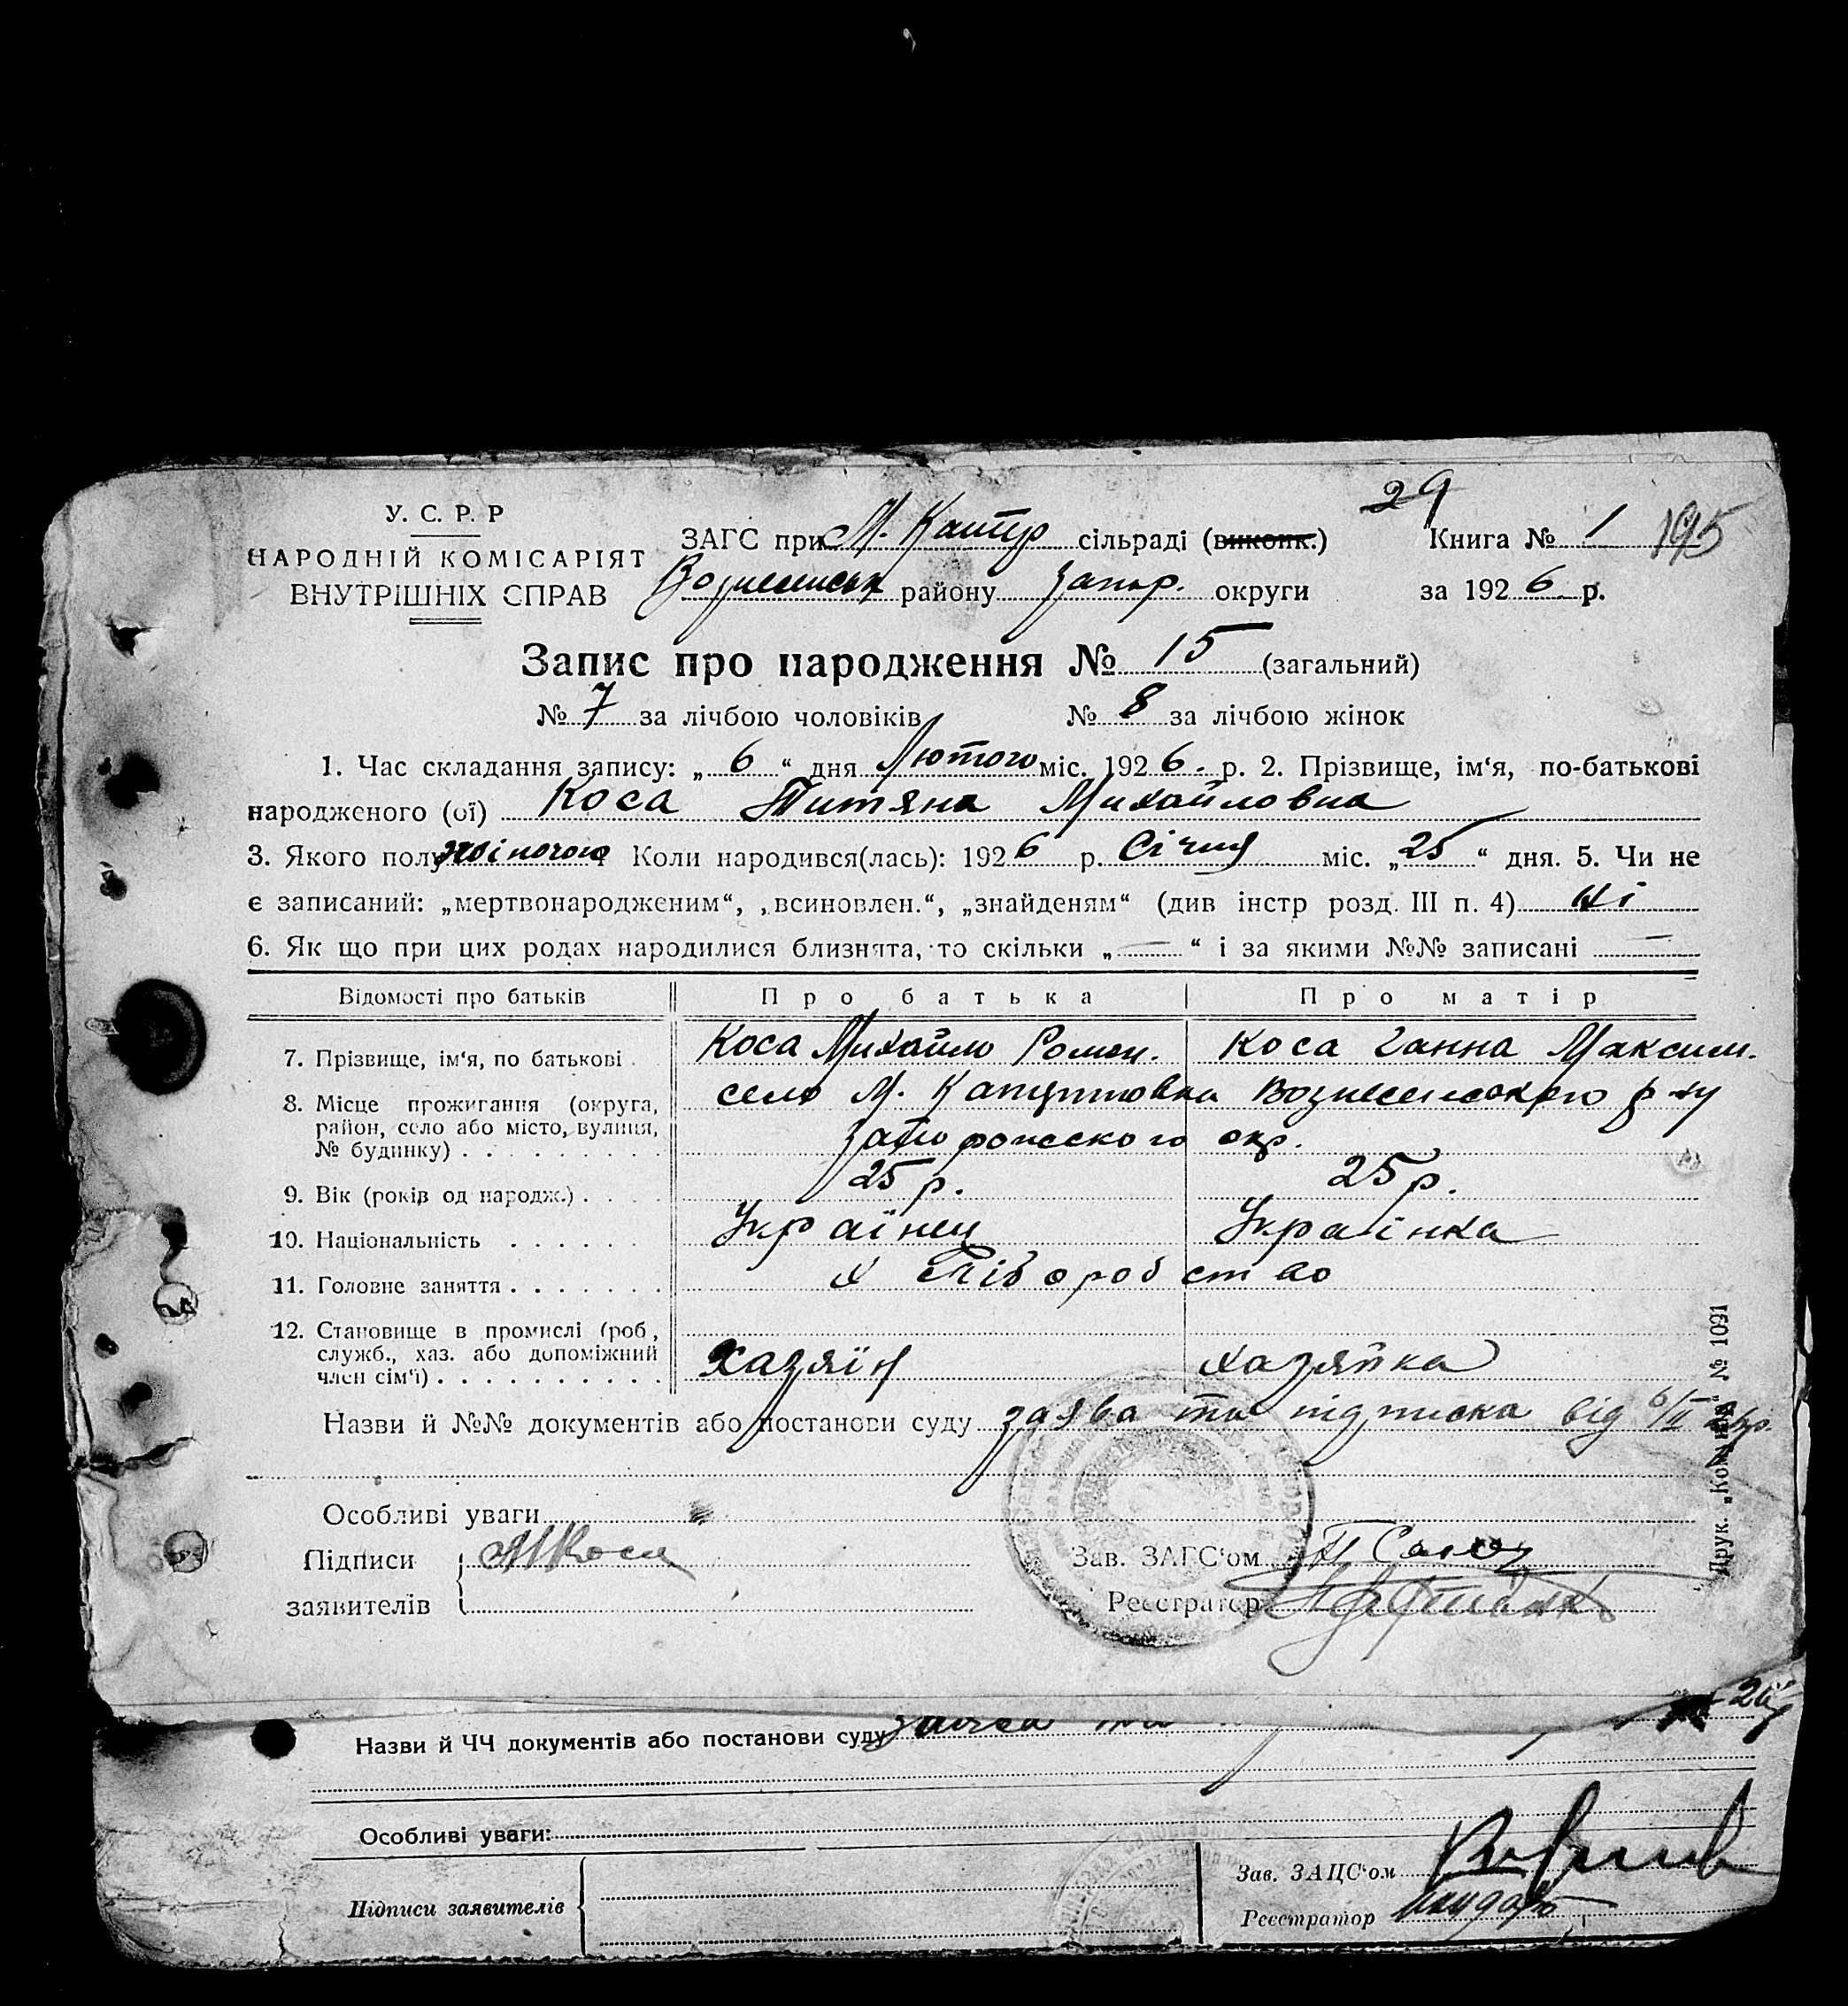 29
У. С. Р. Р
НАРОДНІЙ КОМІСАРІЯТ
ВНУТРІШНІХ СПРАВ
ЗАГС при М. сільраді (виконк.) Книга № 1 195
району Запор. округи за 1926 р.
Запис про народження № 15 (загальний)
№ 7 за лічбою чоловіків № 8 за лічбою жінок
1. Час складання запису: „6“ дня Лютого міс. 1926. р. 2. Прізвище, ім'я, по-батькові
народженого (ої) Коса Титяна Михайловна
3. Якого полу жіночого Коли народився(лась): 1926 р. Січня міс. „25“ дня. 5. Чи не
є записаний: „мертвонародженим“, „всиновлен.“, „знайденям“ (див інстр розд. III п. 4) Ні
6. Як що при цих родах народилися близнята, то скільки „—“ і за якими №№ записані —
Відомості про батьків Про батька Про матір
7. Прізвище, ім'я, по батькові Коса Михайло Роман. Коса Ганна Максим.
8. Місце прожигання (округа, район, село або місто, вулиця, № будинку) село М. Капустовка Вознесенского р-ну
Запорожского окр.
9. Вік (років од народж.) 25 р. 25 р.
10. Національність Українец Українка
11. Головне заняття х Лiборобство
12. Становище в промислі (роб, служб., хаз. або допоміжний член сім'ї) хазяїн хазяйка
Назви й №№ документів або постанови суду заява та підписка від 6/II
Особливі уваги
Підписи МКоса Зав. ЗАГС'ом
заявителів Реєстратор
Друк. „Комунар“ № 1091
Назви й ЧЧ документів або постанови суду
Особливі уваги:
Підписи заявителів
Зав. ЗАЦС'ом
Реєстратор